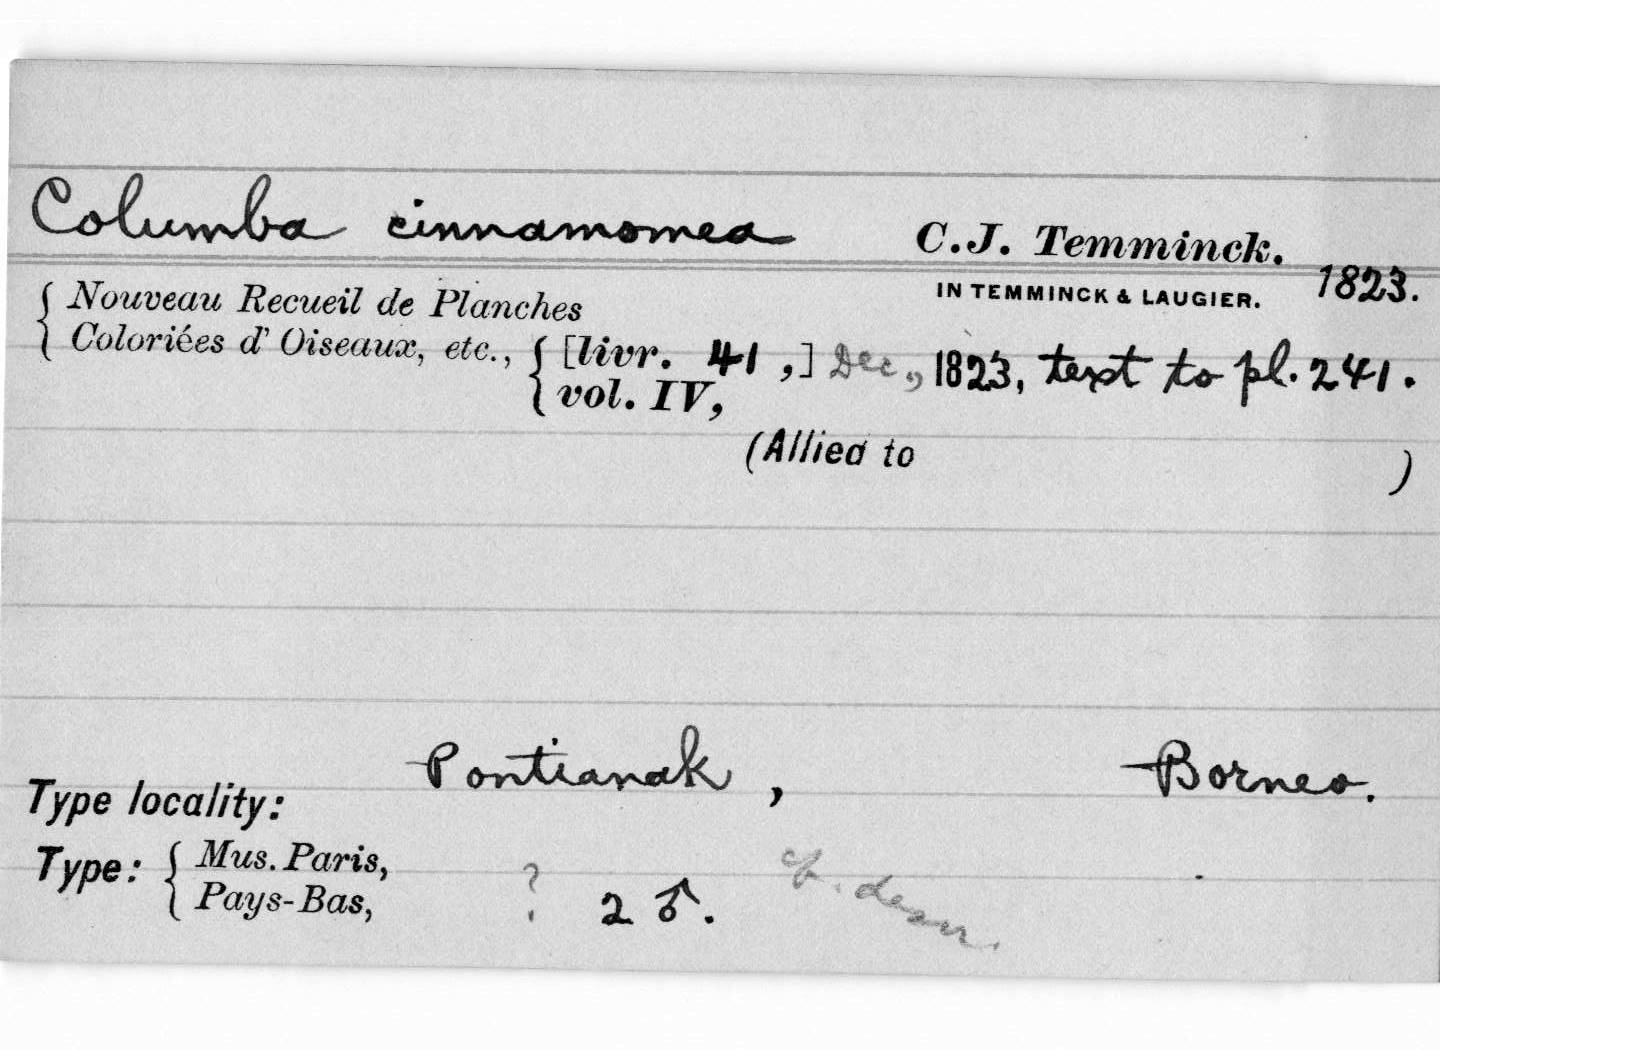 Columba cinnamomea C.J. Temminck.
IN TEMMINCK & LAUGIER. 1823.
{ Nouveau Recueil de Planches
Coloriées d'Oiseaux, etc., { [livr. 41,] Dec., 1823, text to pl. 241.
vol. IV,
(Allied to )
Pontianak, Borneo.
Type locality:
Type: { Mus. Paris,
Pays-Bas, ? 2 ♂. cf. descr.